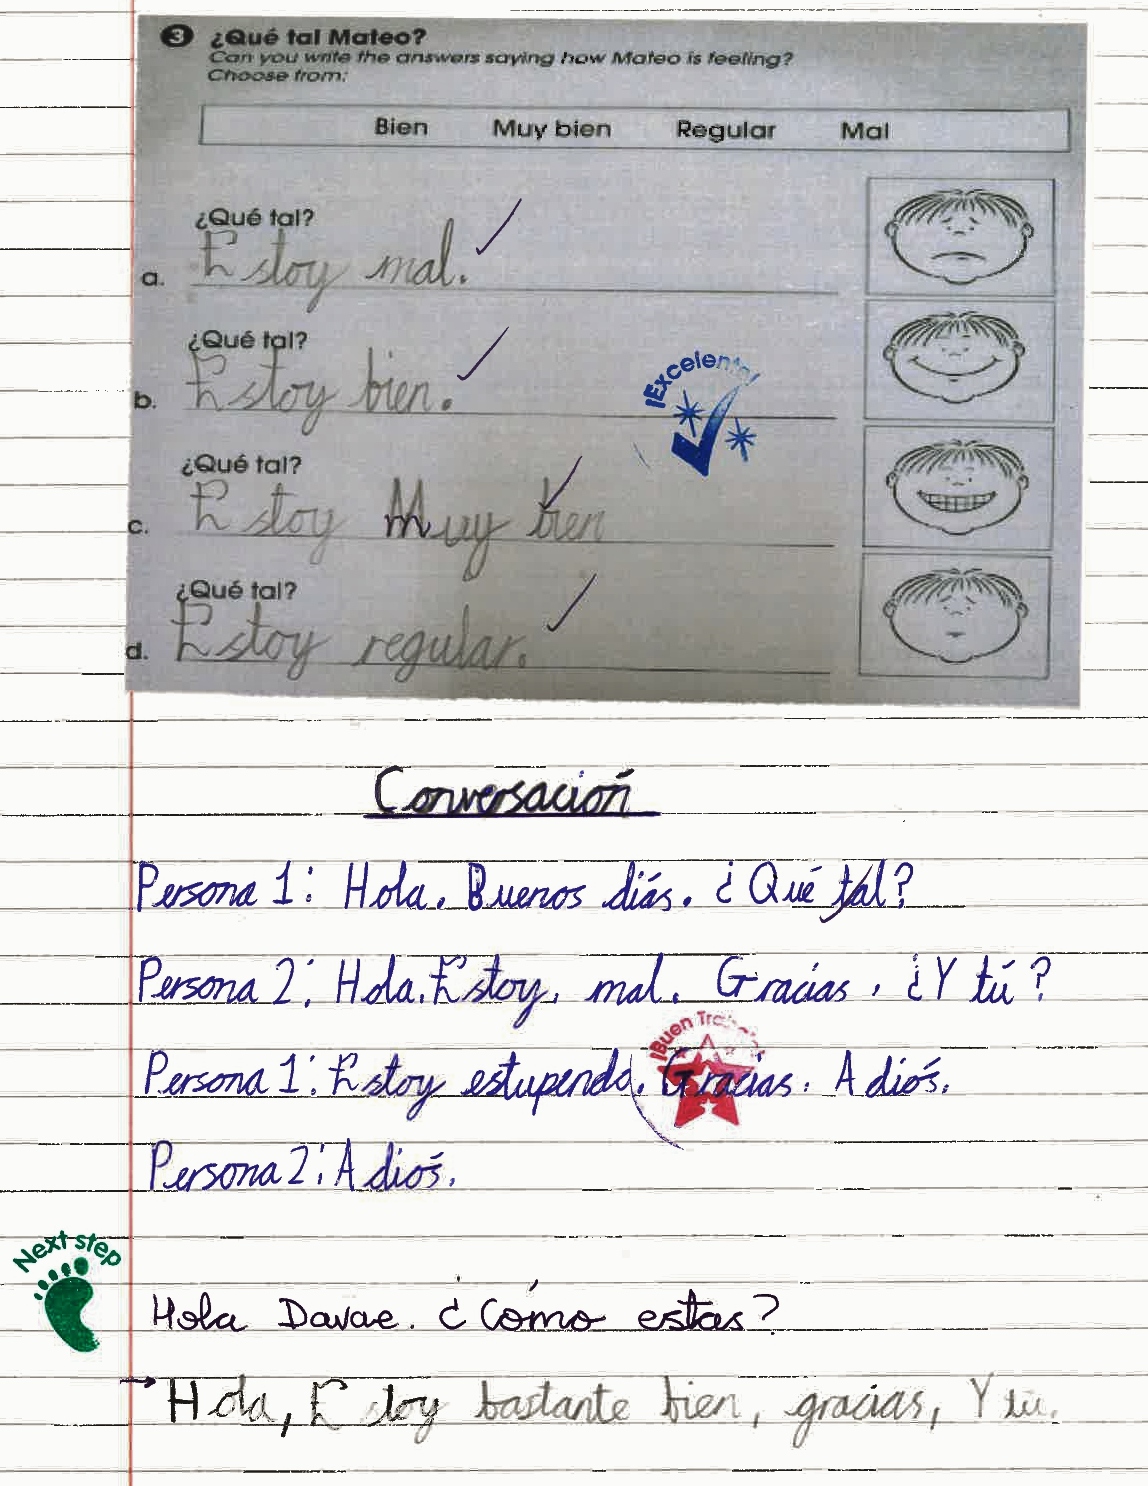 3 ¿Qué tal Mateo?
Can you write the answers saying how Mateo is feeling?
Choose from:
Bien Muy bien Regular Mal
¿Qué tal?
a. Estoy mal.
¿Qué tal?
b. Estoy bien.
¡Excelente!
¿Qué tal?
c. Estoy Muy bien
¿Qué tal?
d. Estoy regular.
Conversación
Persona 1: Hola. Buenos diás. ¿Qué tal?
Persona 2: Hola. Estoy, mal. Gracias. ¿Y tú?
¡Buen Trabajo!
Persona 1: Estoy estupendo. Gracias. Adiós.
Persona 2: Adiós.
Next step
Hola Davae. ¿Cómo estas?
→ Hola, Estoy bastante bien, gracias, Y tú.